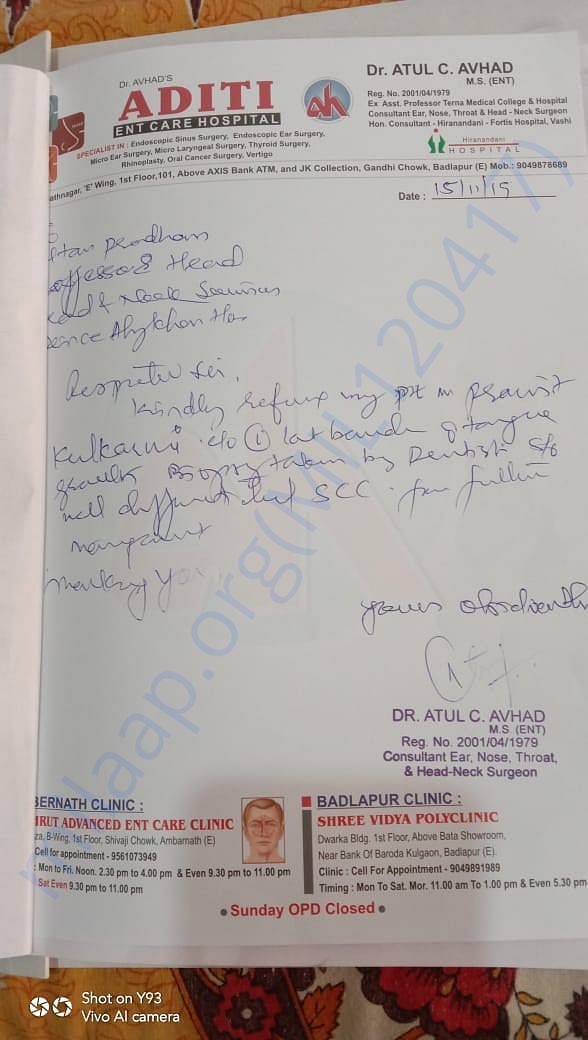 Dr. AVHAD'S
ADITI
ENT CARE HOSPITAL
SPECIALIST IN : Endoscopic Sinus Surgery, Endoscopic Ear Surgery,
Micro Ear Surgery, Micro Laryngeal Surgery, Thyroid Surgery,
Rhinoplasty, Oral Cancer Surgery, Vertigo
Dr. ATUL C. AVHAD
M.S. (ENT)
Reg. No. 2001/04/1979
Ex Asst. Professor Terna Medical College & Hospital
Consultant Ear, Nose, Throat & Head - Neck Surgeon
Hon. Consultant - Hiranandani - Fortis Hospital, Vashi
Hiranandani
HOSPITAL
athnagar, 'E' Wing, 1st Floor,101, Above AXIS Bank ATM, and JK Collection, Gandhi Chowk, Badlapur (E) Mob.: 9049878689
Date : 15/11/19
Head
& Neck
Kindly my pt
Kulkarni c/o tongue
Biopsy taken by Dentist s/o
well SCC
yours
DR. ATUL C. AVHAD
M.S (ENT)
Reg. No. 2001/04/1979
Consultant Ear, Nose, Throat,
& Head-Neck Surgeon
BERNATH CLINIC :
IRUT ADVANCED ENT CARE CLINIC
za, B-Wing, 1st Floor, Shivaji Chowk, Ambarnath (E)
Cell for appointment - 9561073949
: Mon to Fri. Noon. 2.30 pm to 4.00 pm & Even 9.30 pm to 11.00 pm
Sat Even 9.30 pm to 11.00 pm
BADLAPUR CLINIC :
SHREE VIDYA POLYCLINIC
Dwarka Bldg. 1st Floor, Above Bata Showroom,
Near Bank Of Baroda Kulgaon, Badlapur (E).
Clinic : Cell For Appointment - 9049891989
Timing : Mon To Sat. Mor. 11.00 am To 1.00 pm & Even 5.30 pm
• Sunday OPD Closed •
milaap.org(MIL120417)
Shot on Y93
Vivo AI camera